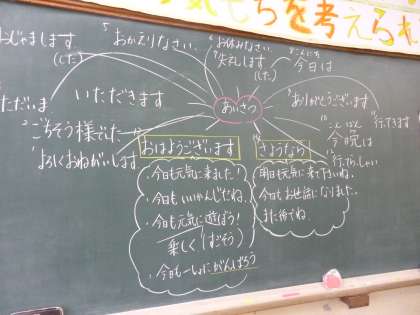 もちを考えられ
おじゃまします
(した)
5 おかえりなさい
お休みなさい
失礼します
(した)
こんにち
今日は
ただいま
いただきます
あいさつ
ありがとうございます
ごちそう様でした
こんばん
今晩は
行てきます
よろしくおねがいします
行てらっしゃい
おはようございます
さようなら
・今日も元気に来ました!
・今日も元気に遊ぼう!
楽しく(すごそう)
・今日も一しょにがんばろう
明日も元気に来て下さいね。
今日もお世話になりました。
また後でね。